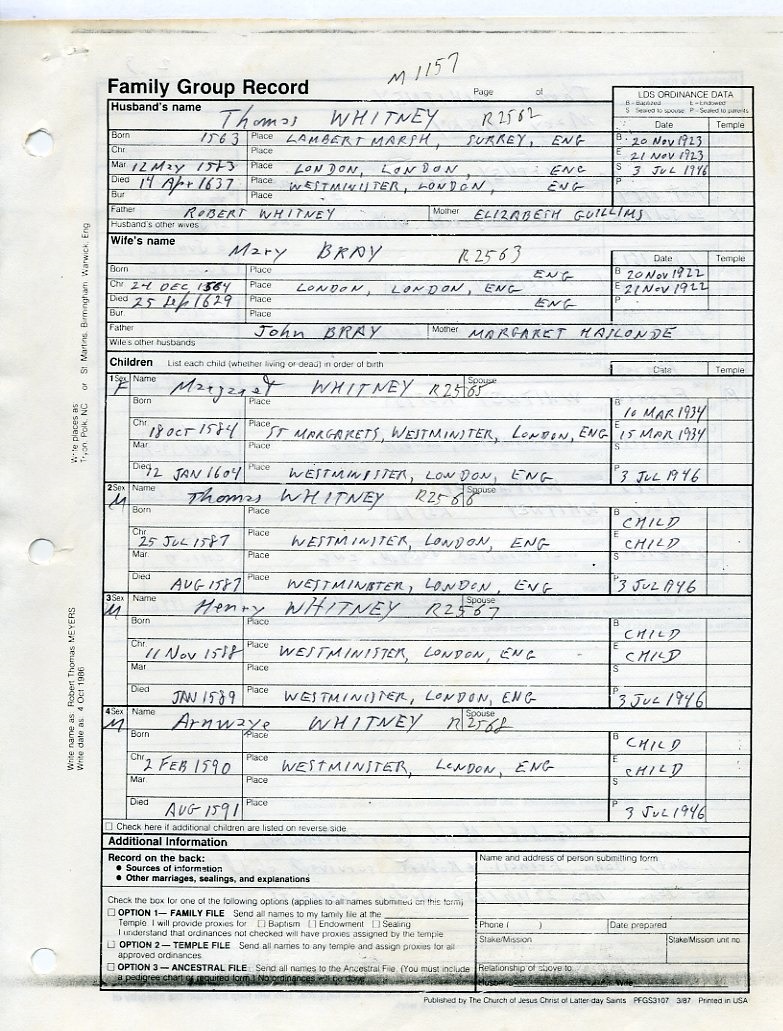 M1157
Family Group Record
Page of
LDS ORDINANCE DATA
B - Baptized E - Endowed
S - Sealed to spouse P - Sealed to parents
Husband's name
Thomas WHITNEY R2562
Date Temple
Born 1563 Place LAMBERT MARSH, SURREY, ENG B 20 NOV 1923
Chr Place E 21 NOV 1923
Mar 12 May 1583 Place LONDON, LONDON, ENG S 3 JUL 1946
Died 14 Apr 1637 Place WESTMINISTER, LONDON, ENG P
Bur Place
Father ROBERT WHITNEY Mother ELIZABETH GUILLIMS
Husband's other wives
Wife's name
Mary BRAY R2563
Date Temple
Born Place ENG B 20 NOV 1922
Chr 24 DEC 1564 Place LONDON, LONDON, ENG E 21 NOV 1922
Died 25 Sep 1629 Place ENG P
Bur. Place
Father John BRAY Mother MARGARET HASLONDE
Wife's other husbands
Children List each child (whether living or dead) in order of birth
Date Temple
1 Sex F Name Margaret WHITNEY R2565 Spouse
Born Place B 10 MAR 1934
Chr. 18 OCT 1584 Place ST MARGARETS, WESTMINSTER, LONDON, ENG E 15 MAR 1934
Mar. Place S
Died 12 JAN 1604 Place WESTMINISTER, LONDON, ENG P 3 JUL 1946
2 Sex M Name Thomas WHITNEY R2566 Spouse
Born Place B CHILD
Chr. 25 JUL 1587 Place WESTMINISTER, LONDON, ENG E CHILD
Mar. Place S
Died AUG 1587 Place WESTMINISTER, LONDON, ENG P 3 JUL 1946
3 Sex M Name Henry WHITNEY R2567 Spouse
Born Place B CHILD
Chr. 11 NOV 1588 Place WESTMINISTER, LONDON, ENG E CHILD
Mar Place S
Died JAN 1589 Place WESTMINISTER, LONDON, ENG P 3 JUL 1946
4 Sex M Name Arnwaye WHITNEY R2568 Spouse
Born Place B CHILD
Chr. 2 FEB 1590 Place WESTMINSTER, LONDON, ENG E CHILD
Mar. Place S
Died AUG 1591 Place P 3 JUL 1946
☐ Check here if additional children are listed on reverse side.
Additional Information
Record on the back:
• Sources of information
• Other marriages, sealings, and explanations
Check the box for one of the following options (applies to all names submitted on this form)
☐ OPTION 1— FAMILY FILE Send all names to my family file at the
Temple. I will provide proxies for ☐ Baptism ☐ Endowment ☐ Sealing
I understand that ordinances not checked will have proxies assigned by the temple
☐ OPTION 2 — TEMPLE FILE Send all names to any temple and assign proxies for all
approved ordinances.
☐ OPTION 3 — ANCESTRAL FILE: Send all names to the Ancestral File. (You must include
a pedigree chart or required form.) No ordinances will be done.
Name and address of person submitting form
Phone ( ) Date prepared
Stake/Mission Stake/Mission unit no.
Relationship of above to:
Husband Wife
Published by The Church of Jesus Christ of Latter-day Saints PFGS3107 3/87 Printed in USA
Write places as: Tryon, Polk, NC or St. Martins, Birmingham, Warwick, Eng
Write name as: Robert Thomas MEYERS
Write date as: 4 Oct 1986